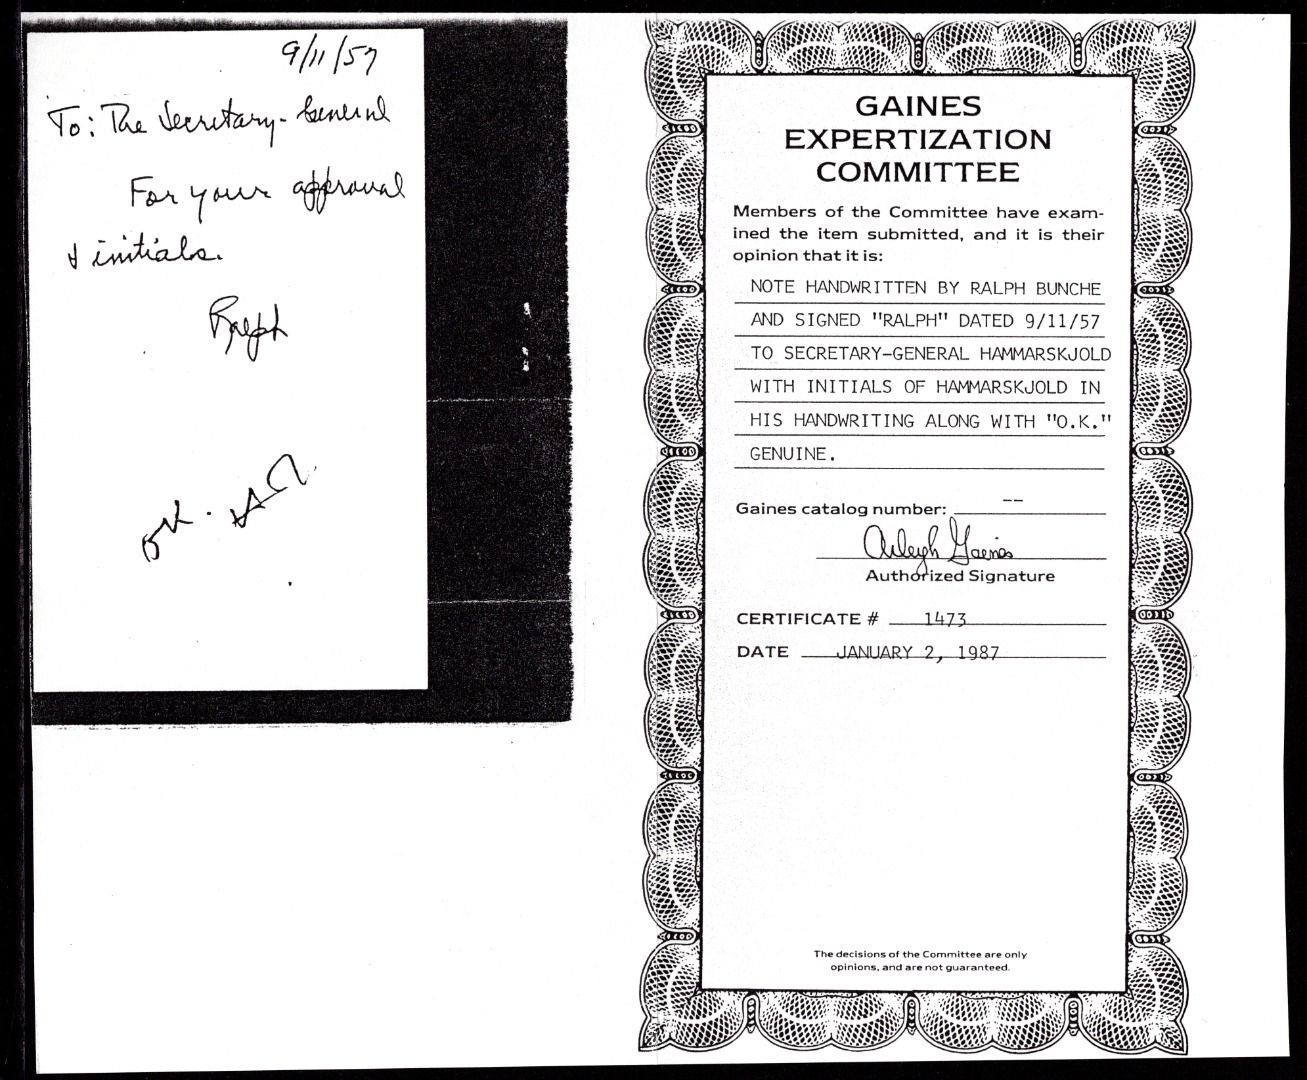 9/11/57
To: The Secretary-General
For your approval
& initials.
Ralph
OK.
GAINES
EXPERTIZATION
COMMITTEE
Members of the Committee have exam-
ined the item submitted, and it is their
opinion that it is:
NOTE HANDWRITTEN BY RALPH BUNCHE
AND SIGNED "RALPH" DATED 9/11/57
TO SECRETARY-GENERAL HAMMARSKJOLD
WITH INITIALS OF HAMMARSKJOLD IN
HIS HANDWRITING ALONG WITH "O.K."
GENUINE.
Gaines catalog number: --
Arleigh Gaines
Authorized Signature
CERTIFICATE # 1473
DATE JANUARY 2, 1987
The decisions of the Committee are only
opinions, and are not guaranteed.